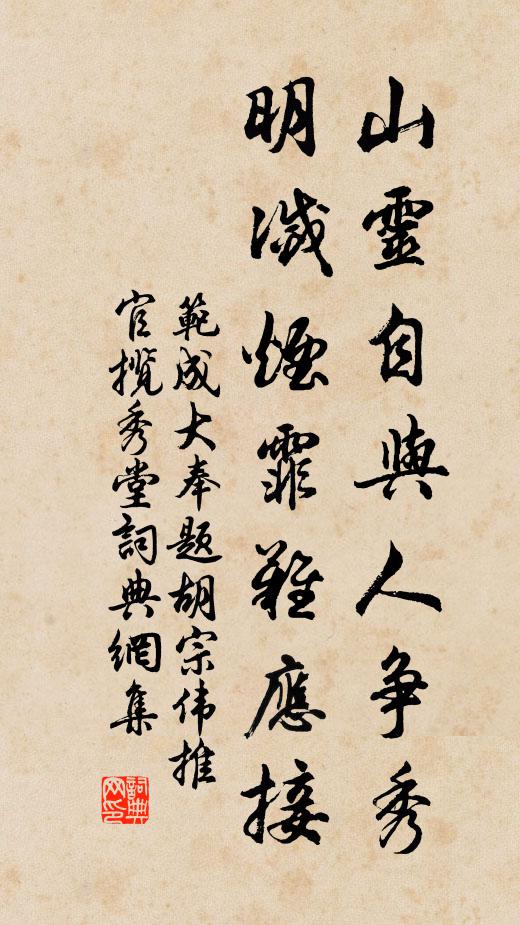 山靈自與人争秀
明滅煙霏難應接
範成大奉題胡宗伟推
官攬秀堂詞典網集
詞典网印